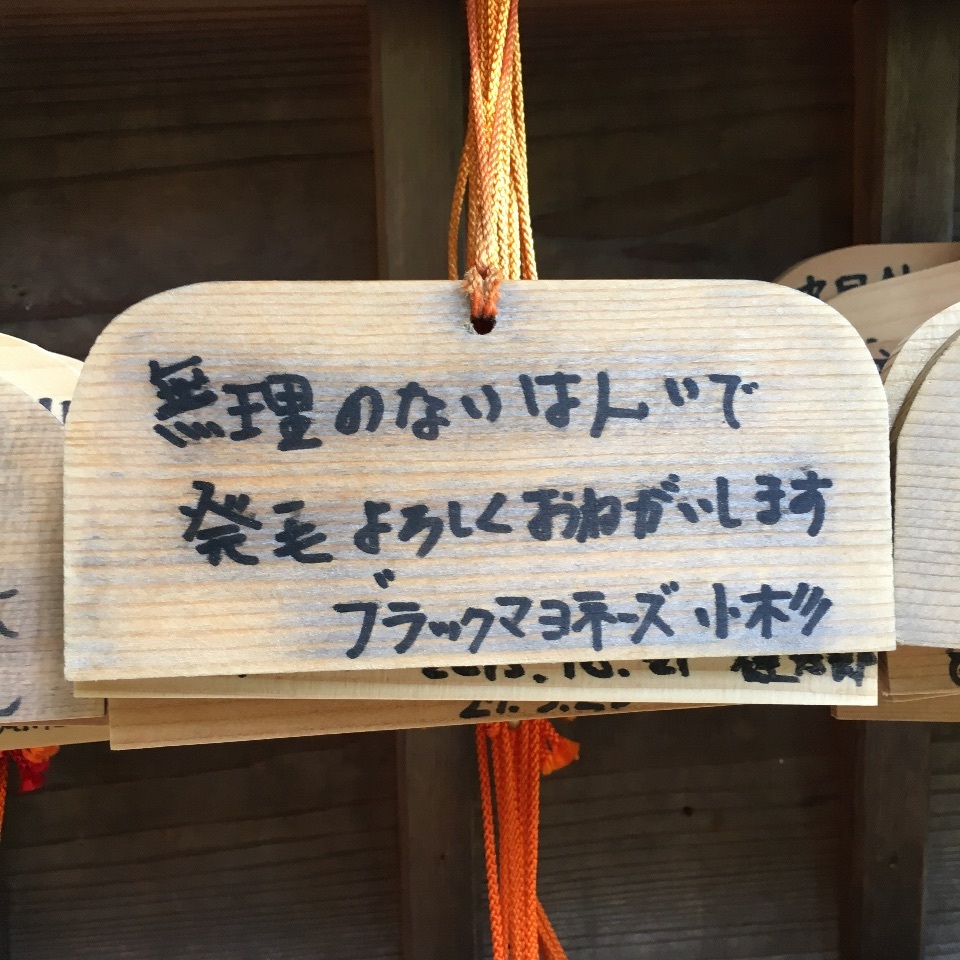 無理のないはんいで
発毛よろしくおねがいします
ブラックマヨネーズ 小杉
2015.10.21